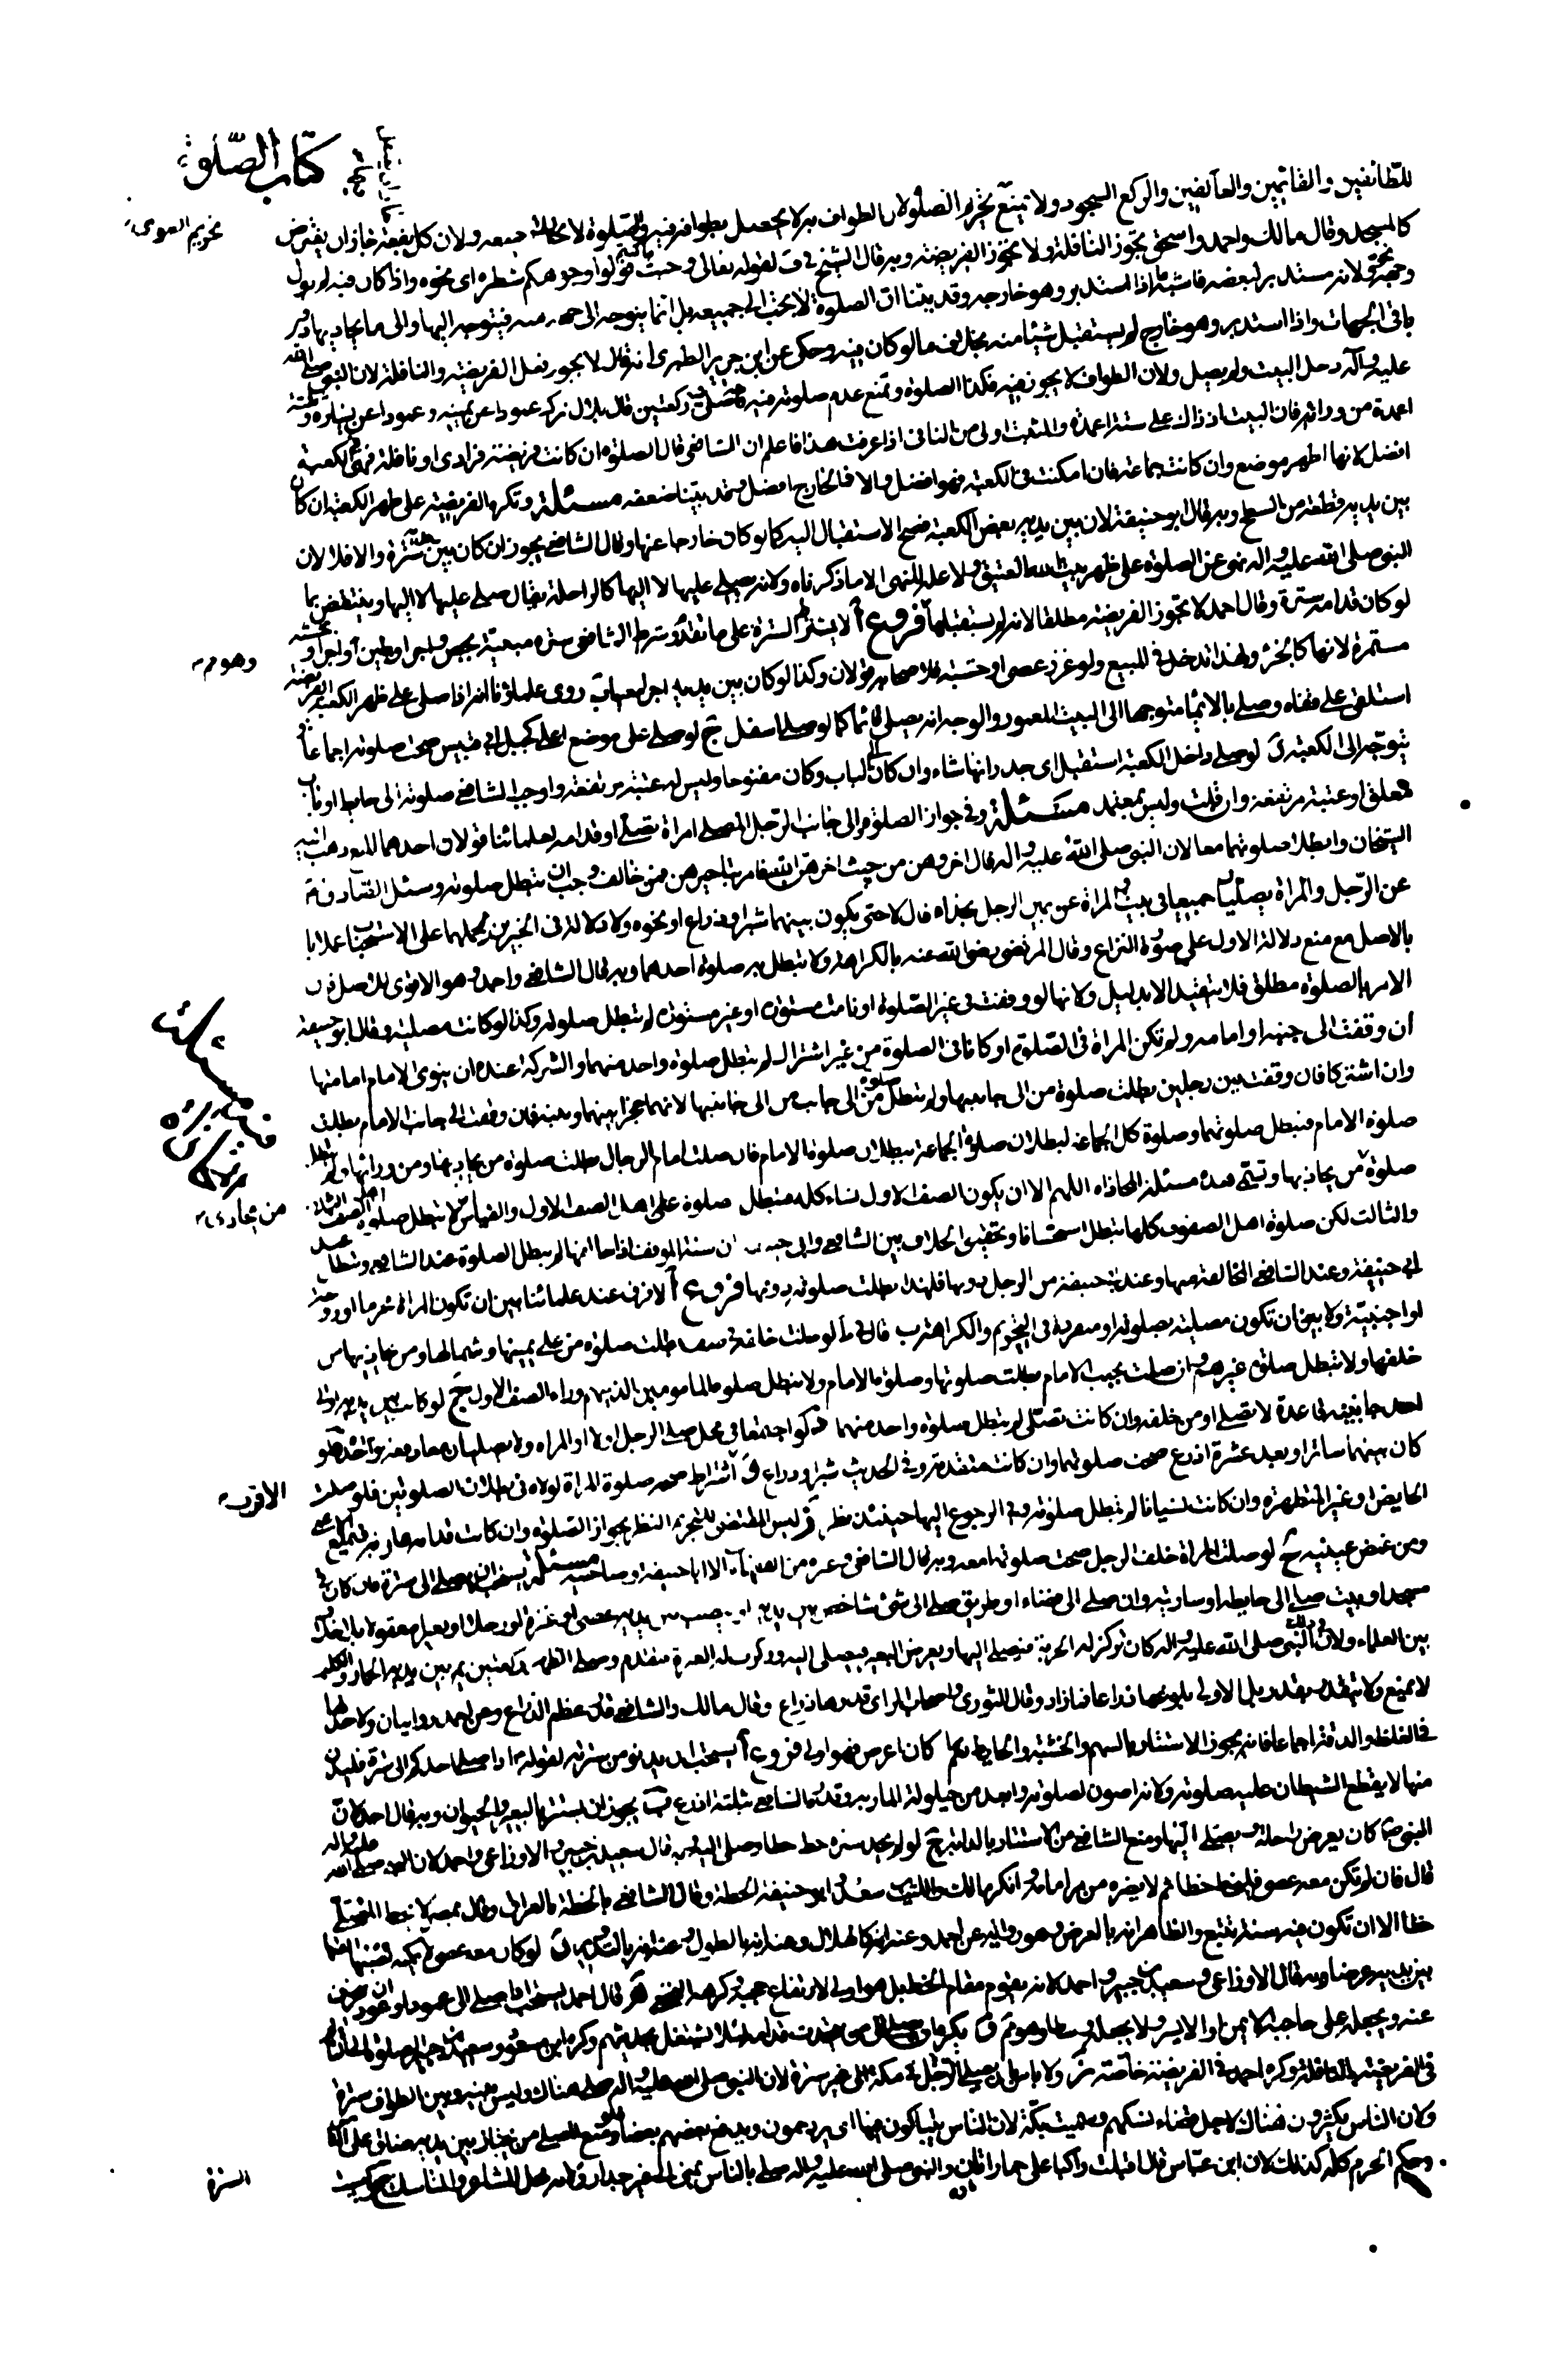 كتاب الصّلوة
للطّائفين والقائمين والعاكفين والركع السجود ولا تمنع تحريم الصلوة لان الطواف به لا يحصل بطوافه فيه والصّلوة لا
كالمسجد وقال مالك واحمد واسحق يجوز النافلة ولا تجوز الفريضة وبه قال الشيخ في ف لقوله تعالى وحيث ما كنتم فولوا وجوهكم شطره اى نحوه واذا كان فيه لم يول
وجهه نحوه لانه مستدبر لبعضه فاشبه ما اذا استدبر وهو خارجه وقد بيّنا ان الصلوة لا يجب الى جميعه بل انما يتوجه الى جهة منه فيتوجه اليها والى ما يحاذيها دون
باقى الجهات واذا استدبر وهو خارج لم يستقبل شيئا منه بخلاف ما لو كان فيه وحكى عن ابن جرير الطبرى انه قال لا يجوز فعل الفريضة والنافلة لان النبى صلى الله
عليه وآله دخل البيت ولم يصل ولان الطواف لا يجوز فيه فكذا الصلوة ونمنع عدم صلوته فيه ركعتين قال بلال ترك عمودا عن يمينه وعمودا عن يساره وثلثة
اعمدة من ورائه فان البيت اذ ذاك على ستة اعمدة والمثبت اولى من النافى اذا عرفت هذا فاعلم ان الشافعى قال الصلوة ان كانت فريضة فرادى او نافلة فهى فى الكعبة
افضل لانها اطهر موضع وان كانت جماعة فان امكنت فى الكعبة فهو افضل والا فالخارج افضل وقد بيّنا ضعفه مسئلة وتكره الفريضة على ظهر الكعبة ان كان
بين يديه قطعة من السطح وبه قال ابو حنيفة لان بين يديه بعض الكعبة فصح الاستقبال اليه كما لو كان خارجا عنها وقال الشافعى يجوز ان كان بين يديه سترة والا فلا لان
النبى صلى الله عليه وآله نهى عن الصلوة على ظهر بيت الله العتيق ولا علة للنهى الا ما ذكرناه ولانه يصلى عليها لا اليها كالراحلة يقال صلى عليها لا اليها وينتقض بما
لو كان قدامه سترة وقال احمد لا تجوز الفريضة مطلقا لانه لم يستقبلها فروع آ لا يشترط السترة على ما تقدّم وشرط الشافعى سترة مبنية بجص
مستمرة لانها كالجزء ولهذا تدخل فى البيع ولو غرز عصى او خشبة فلاصحابه قولان وكذا لو كان بين يديه ب روى علماؤنا انه اذا صلى على ظهر الكعبة
استلقى على قفاه وصلى بالايماء متوجها الى البيت المعمور والوجه انه يصلى قائما كما لو صلى اسفل ج لو صلى على موضع اعلى كجبل ابى قبيس صحت صلوته اجماعا
يتوجّه الى الكعبة د لو صلى داخل الكعبة استقبل اى جدرانها شاء وان كان الى الباب وكان مفتوحا وليس له عتبة مرتفعة واوجب الشافعى صلوته الى حايط او باب
مغلق او عتبة مرتفعة وان قلت وليس بمعتمد مسئلة وفى جواز الصلوة والى جانب الرّجل المصلى امراة تصلّى او قدامه لعلمائنا قولان احدهما المنع ذهب اليه
الشيخان وابطلا صلوتهما معا لان النبى صلى الله عليه وآله قال اخروهن من حيث اخرهنّ الله فامر بتاخيرهن فمن خالف وجب ان تبطل صلوته وسئل الصادق
عن الرّجل والمراة يصلّيان جميعا فى بيت المراة عن يمين الرجل بحذاه قال لا حتى يكون بينهما شبرا او ذراع او نحوه ولا دلالة فى الخبرين لحملهما على الاستحباب عملا
بالاصل مع منع دلالة الاول على صورة النزاع وقال المرتضى رضى الله عنه بالكراهة ولا تبطل به صلوة احدهما وبه قال الشافعى واحمد وهو الاقوى للاصل
الامر بالصلوة مطلق فلا يتقيد الا بدليل ولانها لو وقفت فى غير الصّلوة او نامت مستورة او غير مستورة لم تبطل صلوته وكذا لو كانت مصلية وقال ابو حنيفة
ان وقفت الى جنبه او امامه ولم تكن المراة فى الصّلوة او كانا فى الصلوة من غير اشتراك لم تبطل صلوة واحد منهما والشركة عنده ان ينوى الامام امامتها
وان اشتركا فان وقفت بين رجلين بطلت صلوة من الى جانبيها ولم تبطل صلوة من الى جانب من الى جانبها لانهما حجزا بينهما وبينه فان وقفت الى جانب الامام بطلت
صلوة الامام فتبطل صلوتها وصلوة كل الجماعة لبطلان صلوة الجماعة ببطلان صلوة الامام فان صلت امام الرجال بطلت صلوة من يحاذيها من ورائها ولم تبطل
صلوة من يحاذيها وتسمّى هذه مسئلة المحاذاة اللهم الا ان يكون الصف الاول نساء كله فتبطل صلوة على اهل الصف الاول والقياس ان لا تبطل صلوة اهل الصف الثانى
والثالث لكن صلوة اهل الصفوف كلها تبطل استحسانا وتحقيق الخلاف بين الشافعى وابى حنيفة ان سنة الموقف اذا خالفها لم تبطل الصلوة عند الشافعى وتبطل عند
ابى حنيفة وعند الشافعى المخالفة منها وعند ابى حنيفة من الرجل دونها فلهذا بطلت صلوته دونها فروع آ لا فرق عند علمائنا بين ان تكون المراة محرما او زوجة
او اجنبيّة ولا بين ان تكون مصلية بصلوته او منفردة فى التحريم والكراهة ب قال فى ط لو صلت خلفه فى صف بطلت صلوة من على يمينها وشمالها ومن يحاذيها من
خلفها ولا تبطل صلوة غيرهم وان صلت بجنب الامام بطلت صلوتها وصلوة الامام ولا تبطل صلوة المامومين الذين هم وراء الصف الاول ج لو كانت بين يديه او الى
احد جانبيه قاعدة لا تصلى او من خلفه وان كانت تصلّى لم تبطل صلوة واحد منهما د لو اجتمعا فى محمل صلى الرجل اولا ثم المراة ولا يصليان معا دفعة واحدة ه لو
كان بينهما ساتر او بعد عشرة اذرع صحت صلوتهما وان كانت متقدمة وفى الحديث شبر او ذراع و اشتراط صحة صلوة المراة لولاه فى بطلان الصلوتين فلو صلت
الحايض او غير المتطهرة وان كانت نسيانا لم تبطل صلوته وفى الرجوع اليها حينئذ نظر ز ليس المقتضى للتحريم النظر لجواز الصّلوة وان كانت قدامه عارية ولمنع الاعمى
ومن غمض عينيه ح لو صلت المراة خلف الرجل صحت صلوتها معه وبه قال الشافعى وغيره من العلماء الا ابا حنيفة وصاحبيه مسئلة يستحب ان يصلى الى سترة فان كان فى
مسجد او بيت صلى الى حايطه او سارية وان صلى الى فضاء او طريق صلى الى شئ شاخص بين يديه او ينصب بين يديه عصى او غنزة او رحلا او بعيرا معقولا بلا خلاف
بين العلماء ولان النبى صلى الله عليه وآله كان تركز له الحربة فيصلى اليها ويعرض البعير فيصلى اليه وركزت له العنزة فتقدم وصلى الظهر ركعتين يمر بين يديه الحمار والكلب
لا يمنع ولا يتقدر بقدر بل الاولى بلوغها ذراعا فما زاد وقال الثورى واصحاب الراى قدرها ذراع وقال مالك والشافعى قدر عظم الذراع وعن احمد روايتان ولا حد لها
فى الغلظ والدقة اجماعا فانه يجوز الاستتار بالسهم والخشبة والحايط نعم كل ما كان اعرض فهو اولى فروع آ يستحب ان يدنو من سترته لقوله ع اذا صلى احدكم الى سترة فليدن
منها لا يقطع الشيطان عليه صلوته ولانه اصون لصلوته وابعد من حيلولة المار بينه وقدره الشافعى بثلثة اذرع ب يجوز ان يستتر بالبعير والحيوان وبه قال احمد لان
النبى ص كان يعرض راحلته ويصلى اليها ومنع الشافعى من الاستتار بالدابة ج لو لم يجد سترة خط خطا وصلى اليه وبه قال سعيد بن جبير والاوزاعى واحمد لان النبى صلى الله عليه وآله
قال فان لم تكن معه عصى فليخط خطا ثم لا يضره من مر امامه وانكر مالك والليث بن سعد وابو حنيفة الخط وقال الشافعى بالخط بالعراق وقال بمصر لا يخط المصلّى
خطا الا ان تكون فيه سنة تتبع والظاهر انه بالعرض وهو رواية عن احمد وعنه انه كالهلال وعنه انه بالطول وعنه انه بالتخيير د لو كان معه عصى لا يمكنه نصبها القاها
بين يديه عرضا وبه قال الاوزاعى وسعيد بن جبير واحمد لانه يقوم مقام الخط بل هو اولى لارتفاع حجمه وكرهه النخعى ه قال احمد يستحب اذا صلى الى عمود او عود ان ينحرف
عنه ويجعله على حاجبه الايمن او الايسر ولا يجعله وسطا وهو ممّ و يكره ان يصلى الى من يتحدث قدامه لئلا يشتغل بحديثهم وكره ابن مسعود وسعيد بن جبير الصلوة
فى الفريضة والنافلة وكره احمد فى الفريضة خاصّة ز ولا باس ان يصلى الرجل فى مكة الى غير سترة لان النبى صلى الله عليه وآله صلى هناك وليس بينه وبين الطواف سترة
ولان الناس يكثرون هناك لاجل قضاء نسكهم وسميت بكّة لان الناس يتباكون فيها اى يزدحمون ويدفع بعضهم بعضا فلو منع المصلى من يجتاز بين يديه ضاق على الناس
وحكم الحرم كله كذلك لان ابن عبّاس قال اقبلت راكبا على حمار اتان والنبى صلى الله عليه وآله صلى بالناس بمنى الى غير جدار ولانه محل المشاعر والمناسك ح لو
السترة
وهو م
من يحاذى
الاقرب
مسئلة